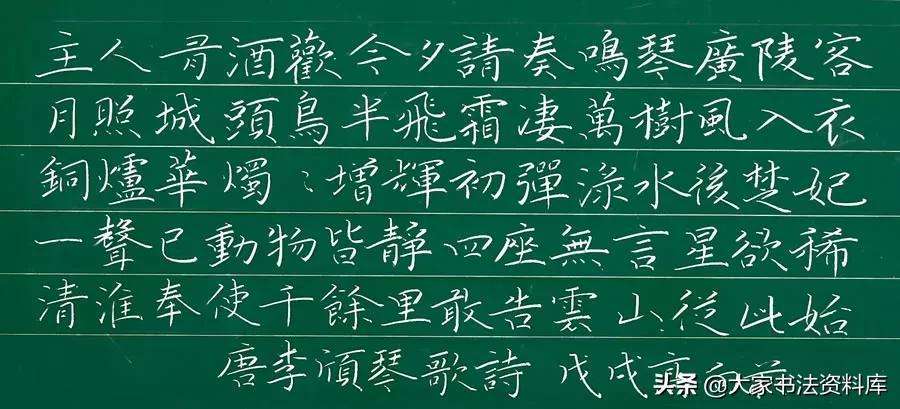 主人有酒歡今夕請奏鳴琴廣陵客
月照城頭鳥半飛霜凄萬樹風入衣
銅爐華燭〻增輝初彈淥水後楚妃
一聲已動物皆靜四座無言星欲稀
清淮奉使千餘里敢告雲山從此始
唐李頎琴歌詩 戊戌
头条 @大家书法资料库